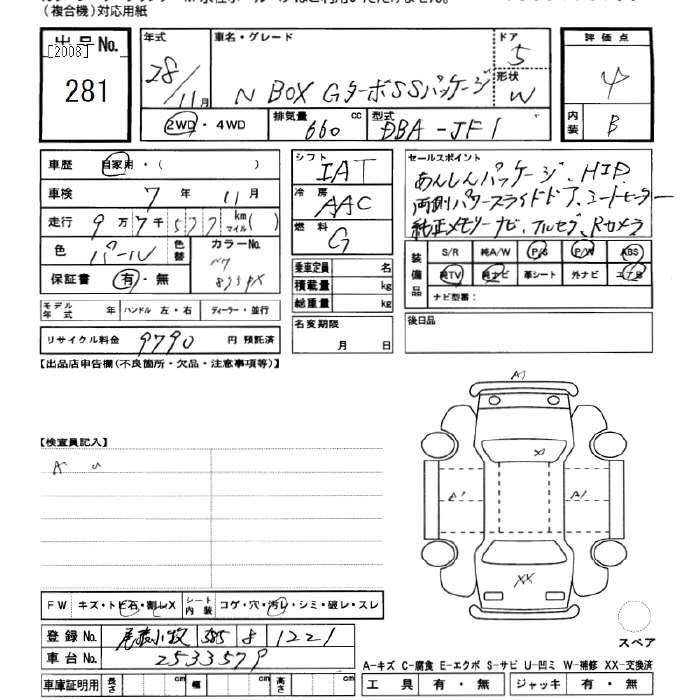 （複合機）対応用紙
出品No.
[2008]
281
年式
28/11月
車名・グレード
N BOX GターボSSパッケージ
ドア
5
形状
W
評価点
4
内装
B
2WD・4WD
排気量 660 cc
型式 DBA-JF1
車歴 自家用・（ ）
車検 7年 11月
走行 9万7千577 km マイル( )
色 パール
色替
カラーNo.
NH
875PX
保証書 有・無
モデル年式 年
ハンドル 左・右
ディーラー・並行
リサイクル料金 9790 円 預託済
シフト IAT
冷房 AAC
燃料 G
乗車定員 名
積載量 kg
総重量 kg
名変期限
月 日
セールスポイント
あんしんパッケージ、HID
両側パワースライドドア、シートヒーター
純正メモリーナビ、フルセグ、Rカメラ
装備品
S/R 純A/W P/S P/W ABS
純TV 純ナビ 革シート 外ナビ エアB
ナビ型番：
後日品
【出品店申告欄(不良箇所・欠品・注意事項等)】
A1
X1
A1
A1
XX
【検査員記入】
A U
FW キズ・トビ石・割レX
シート内装 コゲ・穴・汚レ・シミ・破レ・スレ
登録No. 尾張小牧 585 る 1221
車台No. 2533579
車庫証明用 長さ cm 幅 cm 高さ cm
スペア
A-キズ C-腐食 E-エクボ S-サビ U-凹ミ W-補修 XX-交換済
工具 有・無 ジャッキ 有・無